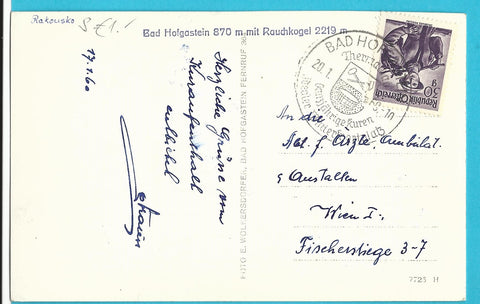 Rakousko
S € 1.-
Bad Hofgastein 870 m mit Rauchkogel 2219 m
17.1.60
Herzliche Grüsse vom
Kuraufenthalt
entbietet
FOTO E. WOLKERSDORFER, BAD HOFGASTEIN FERNRUF
BAD HOF
20.1.
Ganzjährige Kuren
Republik Österreich
30 g
An die
Abt. f. Ärzte, Ambulat.
& Anstalten
Wien I.
Fischerstiege 3-7
7725 H